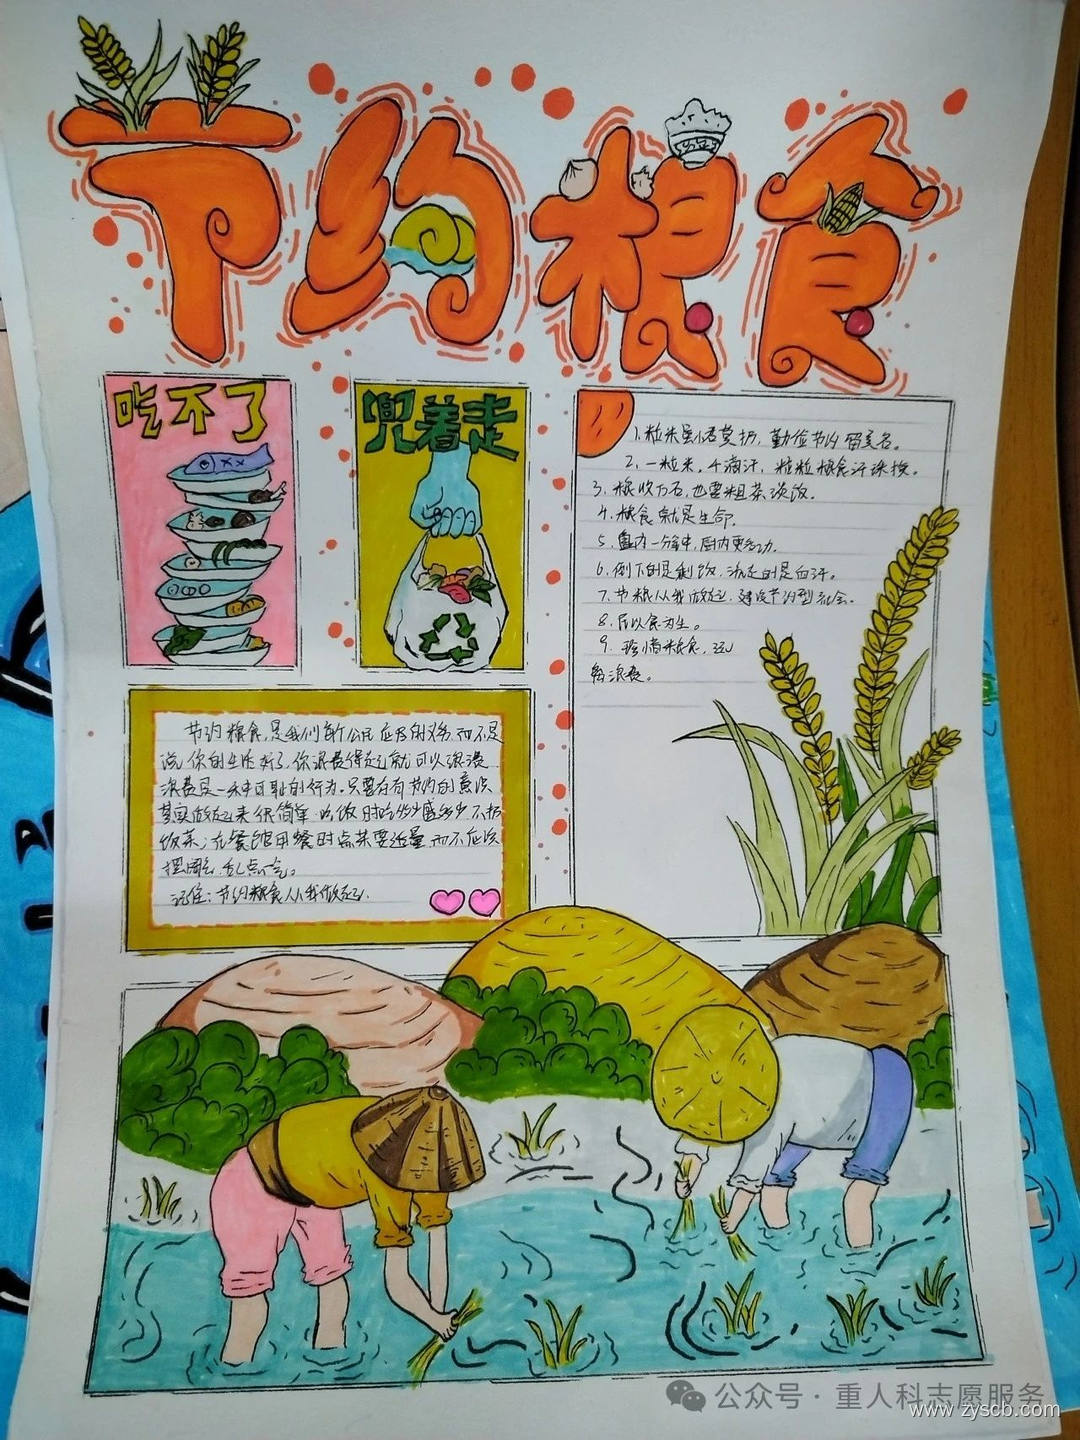 节约粮食
吃不了
兜着走
1.粒米虽小君莫扔，勤俭节约留美名。
2.一粒米，千滴汗，粒粒粮食汗珠换。
3.粮收万石，也要粗茶淡饭。
4.粮食就是生命。
5.盘内一分钟，田内更劳动。
6.倒下的是剩饭，流走的是血汗。
7.节粮从我做起，建设节约型社会。
8.民以食为生。
9.珍惜粮食，远
离浪费。
节约粮食，是我们每个公民应尽的义务，而不是
说你的生活好了，你浪费得起就可以浪费
浪费是一种可耻的行为。只要存有节约的意识
其实做起来很简单：吃饭时吃多少盛多少不扔
饭菜；在餐馆用餐时点菜要适量，而不应该
摆阔，乱点一气。
记住：节约粮食从我做起。
公众号·重人科志愿服务
www.zyscb.com